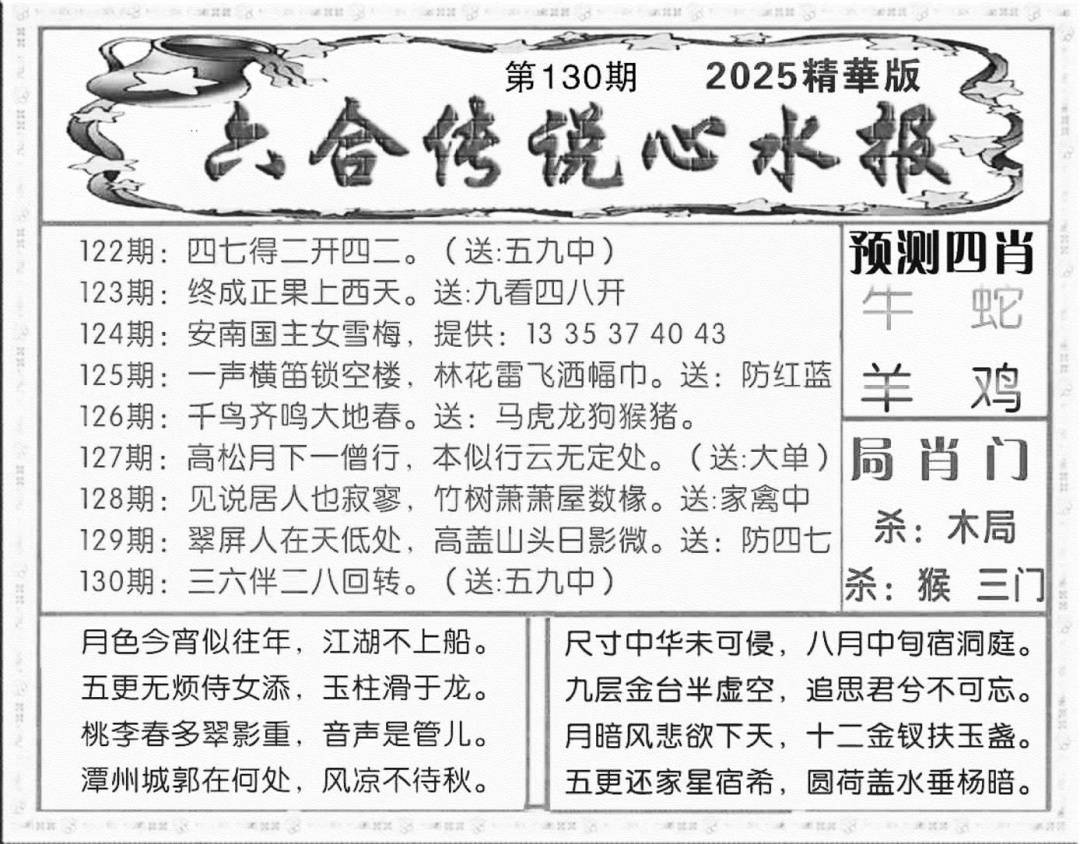 第130期 2025精華版
六合传说心水报
122期：四七得二开四二。（送:五九中）
123期：终成正果上西天。送:九看四八开
124期：安南国主女雪梅，提供：13 35 37 40 43
125期：一声横笛锁空楼，林花雷飞洒幅巾。送：防红蓝
126期：千鸟齐鸣大地春。送：马虎龙狗猴猪。
127期：高松月下一僧行，本似行云无定处。（送:大单）
128期：见说居人也寂寥，竹树萧萧屋数椽。送:家禽中
129期：翠屏人在天低处，高盖山头日影微。送：防四七
130期：三六伴二八回转。（送:五九中）
预测四肖
牛 蛇
羊 鸡
局肖门
杀：木局
杀：猴 三门
月色今宵似往年，江湖不上船。
五更无烦侍女添，玉柱滑于龙。
桃李春多翠影重，音声是管儿。
潭州城郭在何处，风凉不待秋。
尺寸中华未可侵，八月中旬宿洞庭。
九层金台半虚空，追思君兮不可忘。
月暗风悲欲下天，十二金钗扶玉盏。
五更还家星宿希，圆荷盖水垂杨暗。